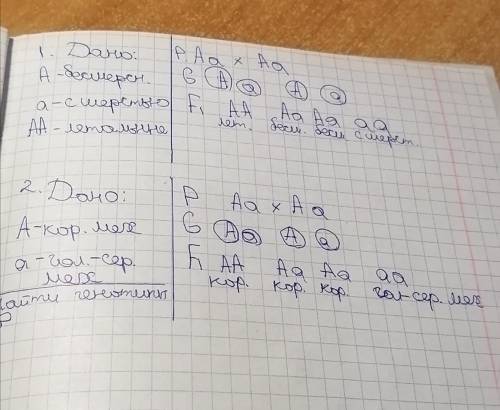 1. Дано:
А-бесшерсн.
а-с шерстью
АА-летальные
P Aa x Aa
G A a A a
F₁ AA Aa Aa aa
лет. бесш. бесш. с шерст.
2. Дано:
А-кор. мех
а-гол-сер.
мех
найти генотипы
P
P Aa x Aa
G A a A a
F₁ AA Aa Aa aa
кор. кор. кор. гол-сер. мех